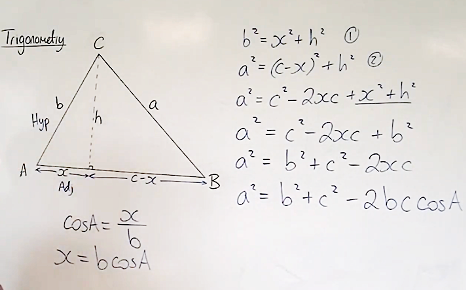 Trigonometry
C
b
Hyp
h
a
A
x
Adj
c-x
B
cosA = x/b
x = b cosA
b² = x² + h² ①
a² = (c-x)² + h² ②
a² = c² - 2xc + x² + h²
a² = c² - 2xc + b²
a² = b² + c² - 2xc
a² = b² + c² - 2bc cosA